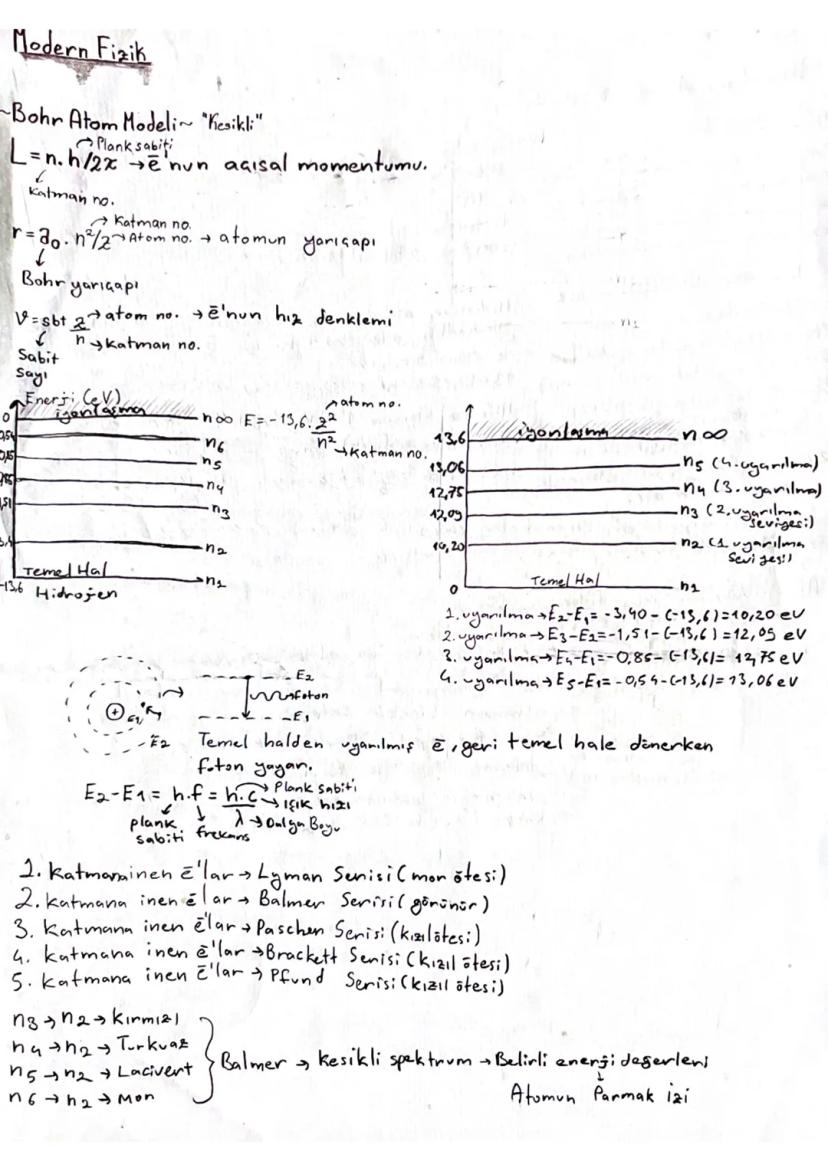 Modern Fizik
~Bohr Atom Modeli~ "Kesikli"
Plank sabiti
L = n.h/2π → ē'nun açısal momentumu.
Katman no.
Katman no.
r = a₀.n²/z → Atom no. → atomun yarıçapı
Bohr yarıçapı
V = sbt z/n → atom no. → ē'nun hız denklemi
→ Katman no.
Sabit
Sayı
Enerji (eV)
iyonlaşma
0
n∞
E = -13,6 . z²/n²
atom no.
Katman no.
n6
n5
n4
n3
n2
Temel Hal
n1
-13,6
Hidrojen
13,6 iyonlaşma n∞
13,06 n5 (4. uyarılma)
12,75 n4 (3. uyarılma)
12,09 n3 (2. uyarılma
seviyesi)
10,20 n2 (1. uyarılma
seviyesi)
0 Temel Hal n1
1. uyarılma → E2-E1 = -3,40 - (-13,6) = 10,20 eV
2. uyarılma → E3-E2 = -1,51 - (-13,6) = 12,09 eV
3. uyarılma → E4-E1 = -0,85 - (-13,6) = 12,75 eV
4. uyarılma → E5-E1 = -0,54 - (-13,6) = 13,06 eV
+
E1
E2
E2
foton
E1
Temel halden uyarılmış ē, geri temel hale dönerken
foton yayar.
E2-E1 = h.f = h.c/λ
Plank sabiti
Işık hızı
Dalga Boyu
plank
sabiti
frekans
1. Katmana inen ē'lar → Lyman Serisi (mor ötesi)
2. Katmana inen ē lar → Balmer Serisi (görünür)
3. Katmana inen ē'lar → Paschen Serisi (kızılötesi)
4. Katmana inen ē'lar → Brackett Serisi (kızıl ötesi)
5. Katmana inen ē'lar → Pfund Serisi (kızıl ötesi)
n3 → n2 → Kırmızı
n4 → n2 → Turkuaz
n5 → n2 → Lacivert
n6 → n2 → Mor
Balmer → kesikli spektrum → Belirli enerji değerleri
Atomun Parmak izi